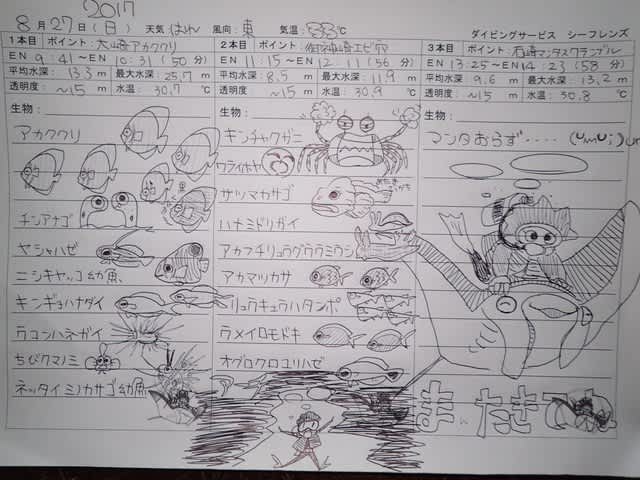 2017
8月27日(日) 天気 はれ 風向: 東 気温: 33℃ ダイビングサービス シーフレンズ
1本目 ポイント: 大崎アカククリ
EN 9:41~EN 10:31 (50分)
平均水深: 13.3 m 最大水深: 25.7 m
透明度: ~15 m 水温: 30.7 ℃
生物:
アカククリ
チンアナゴ
ヤシャハゼ
ニシキヤッコ幼魚
キンギョハナダイ
ウコンハネガイ
ちびクマノミ
ネッタイミノカサゴ幼魚
2本目 ポイント: 御神崎エビ穴
EN 11:15~EN 12:11 (56分)
平均水深: 8.5 m 最大水深: 11.9 m
透明度: ~15 m 水温: 30.9 ℃
生物:
キンチャクガニ
ワライボヤ
サツマカサゴ
ハナミドリガイ
アカフチリュウグウウミウシ
アカマツカサ
リュウキュウハタンポ
ウメイロモドキ
オグロクロユリハゼ
3本目 ポイント: 石崎マンタスクランブル
EN 13:25~EN 14:23 (58分)
平均水深: 9.6 m 最大水深: 13.2 m
透明度: ~15 m 水温: 30.8 ℃
生物:
マンタおらず‥‥
またきて